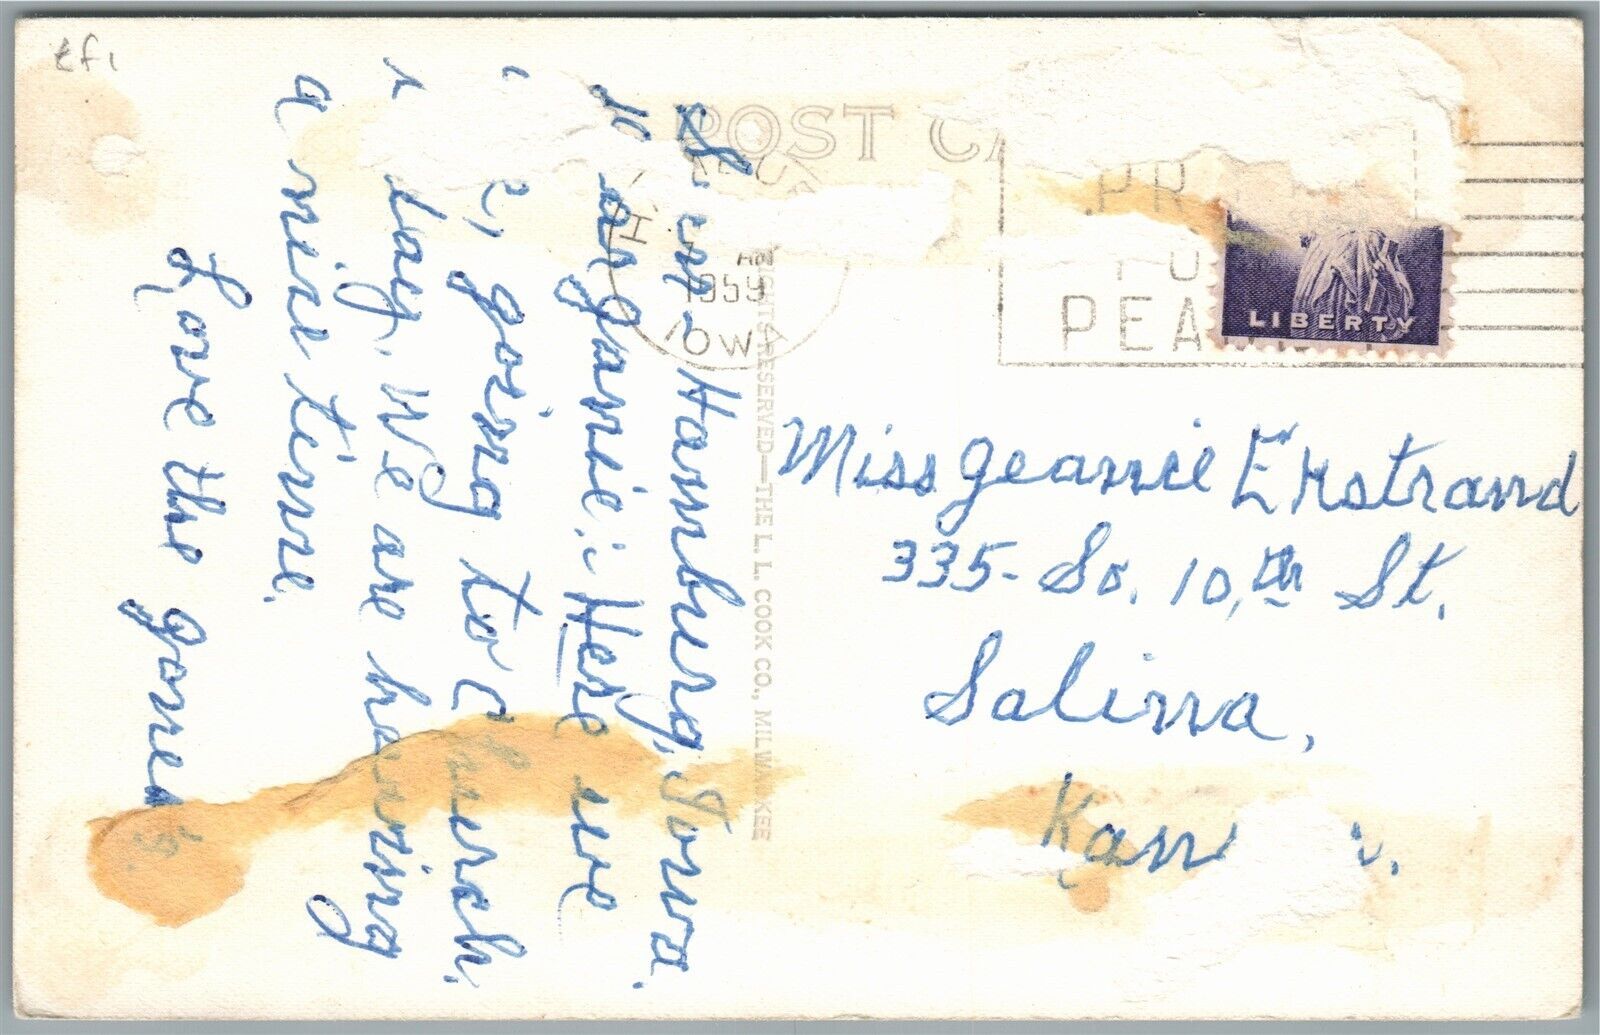 POST CA
1959
IOWA
PR
PEA
LIBERTY
RIGHTS RESERVED—THE L. L. COOK CO., MILWAUKEE
Hamburg, Iowa.
Jeanie: Here we
going to Church.
day. We are having
a nice time.
Love the Jones's.
Miss Jeanie Ekstrand
335- So. 10,th St.
Salina,
Kan